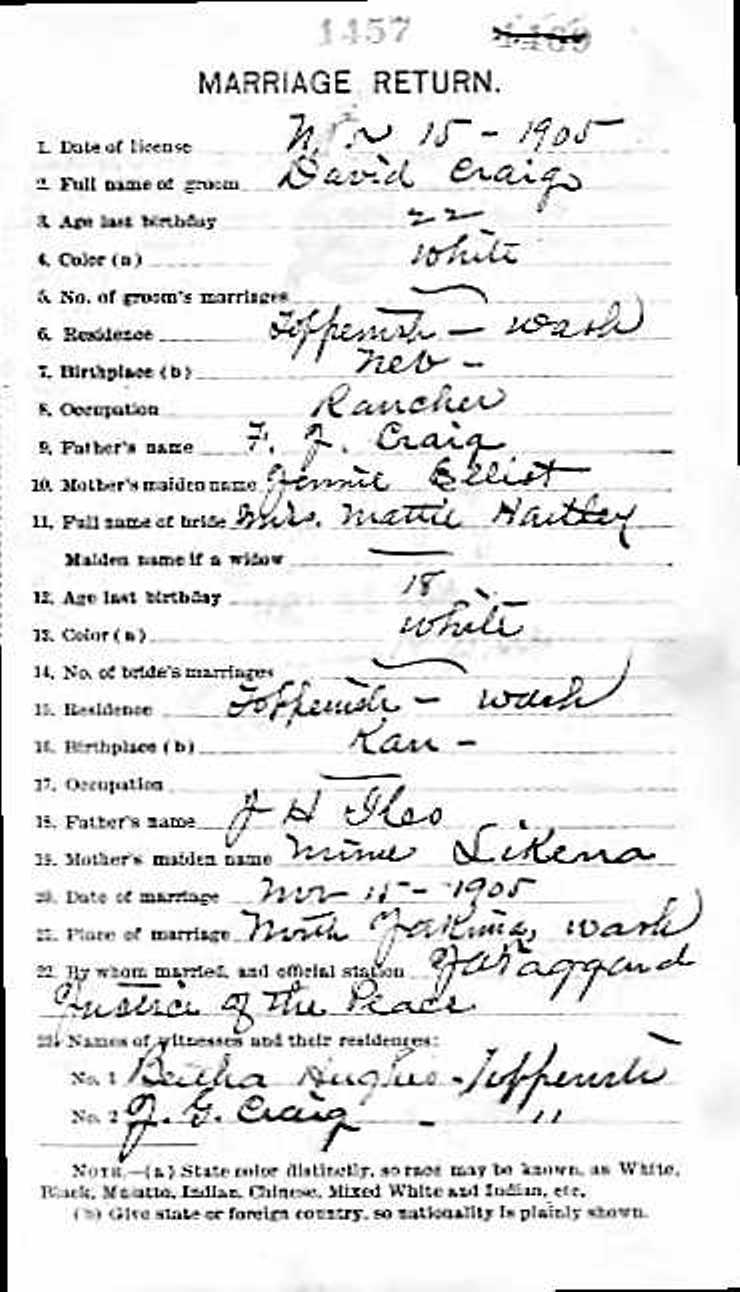 1457
MARRIAGE RETURN.
1. Date of license Nov 15 - 1905
2. Full name of groom David Craig
3. Age last birthday 22
4. Color (a) White
5. No. of groom's marriages
6. Residence Toppenish - Wash
7. Birthplace (b) Neb -
8. Occupation Rancher
9. Father's name F. J. Craig
10. Mother's maiden name Jennie Elliot
11. Full name of bride Mrs. Mattie Hartley
Maiden name if a widow
12. Age last birthday 18
13. Color (a) White
14. No. of bride's marriages
15. Residence Toppenish - Wash
16. Birthplace (b) Kan -
17. Occupation
18. Father's name J H
19. Mother's maiden name
20. Date of marriage Nov 15 - 1905
21. Place of marriage North Yakima, Wash
22. By whom married, and official station
Justice of the Peace
23. Names of witnesses and their residences:
No. 1 Bertha Hughes - Toppenish
No. 2 J. G. Craig - "
NOTE.—(a) State color distinctly, so race may be known, as White,
Black, Mulatto, Indian, Chinese, Mixed White and Indian, etc.
(b) Give state or foreign country, so nationality is plainly shown.